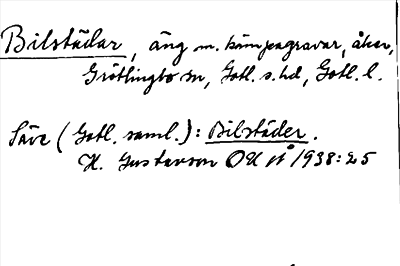 Bilstädar, äng m. kämpagravar, åker,
Grötlingbo sn, Gotl. s. hd, Gotl. l.
Säve (Gotl. saml.): Bilstäder.
H. Gustavson OU 1938:25